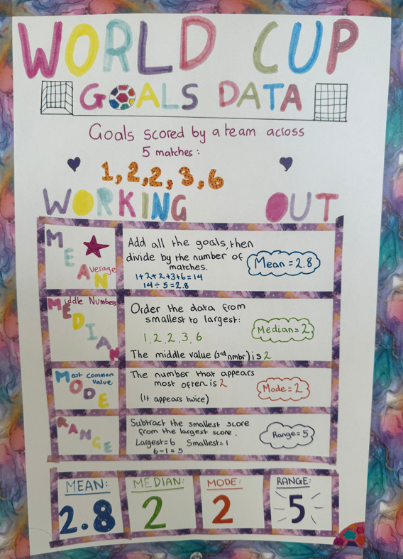 WORLD CUP
GOALS DATA
Goals scored by a team across
5 matches:
1,2,2,3,6
WORKING OUT
MEAN
Average
Add all the goals, then
divide by the number of
matches.
1+2+2+3+6=14
14÷5=2.8
Mean = 2.8
MEDIAN
Middle Number
Order the data from
smallest to largest:
1, 2, 2, 3, 6
The middle value (3rd nmbr) is 2
Median = 2
MODE
Most common
Value
The number that appears
most often is 2
(It appears twice)
Mode = 2
RANGE
Subtract the smallest score
from the largest score.
Largest=6 Smallest=1
6-1=5
Range=5
MEAN: MEDIAN: MODE: RANGE:
2.8 2 2 5